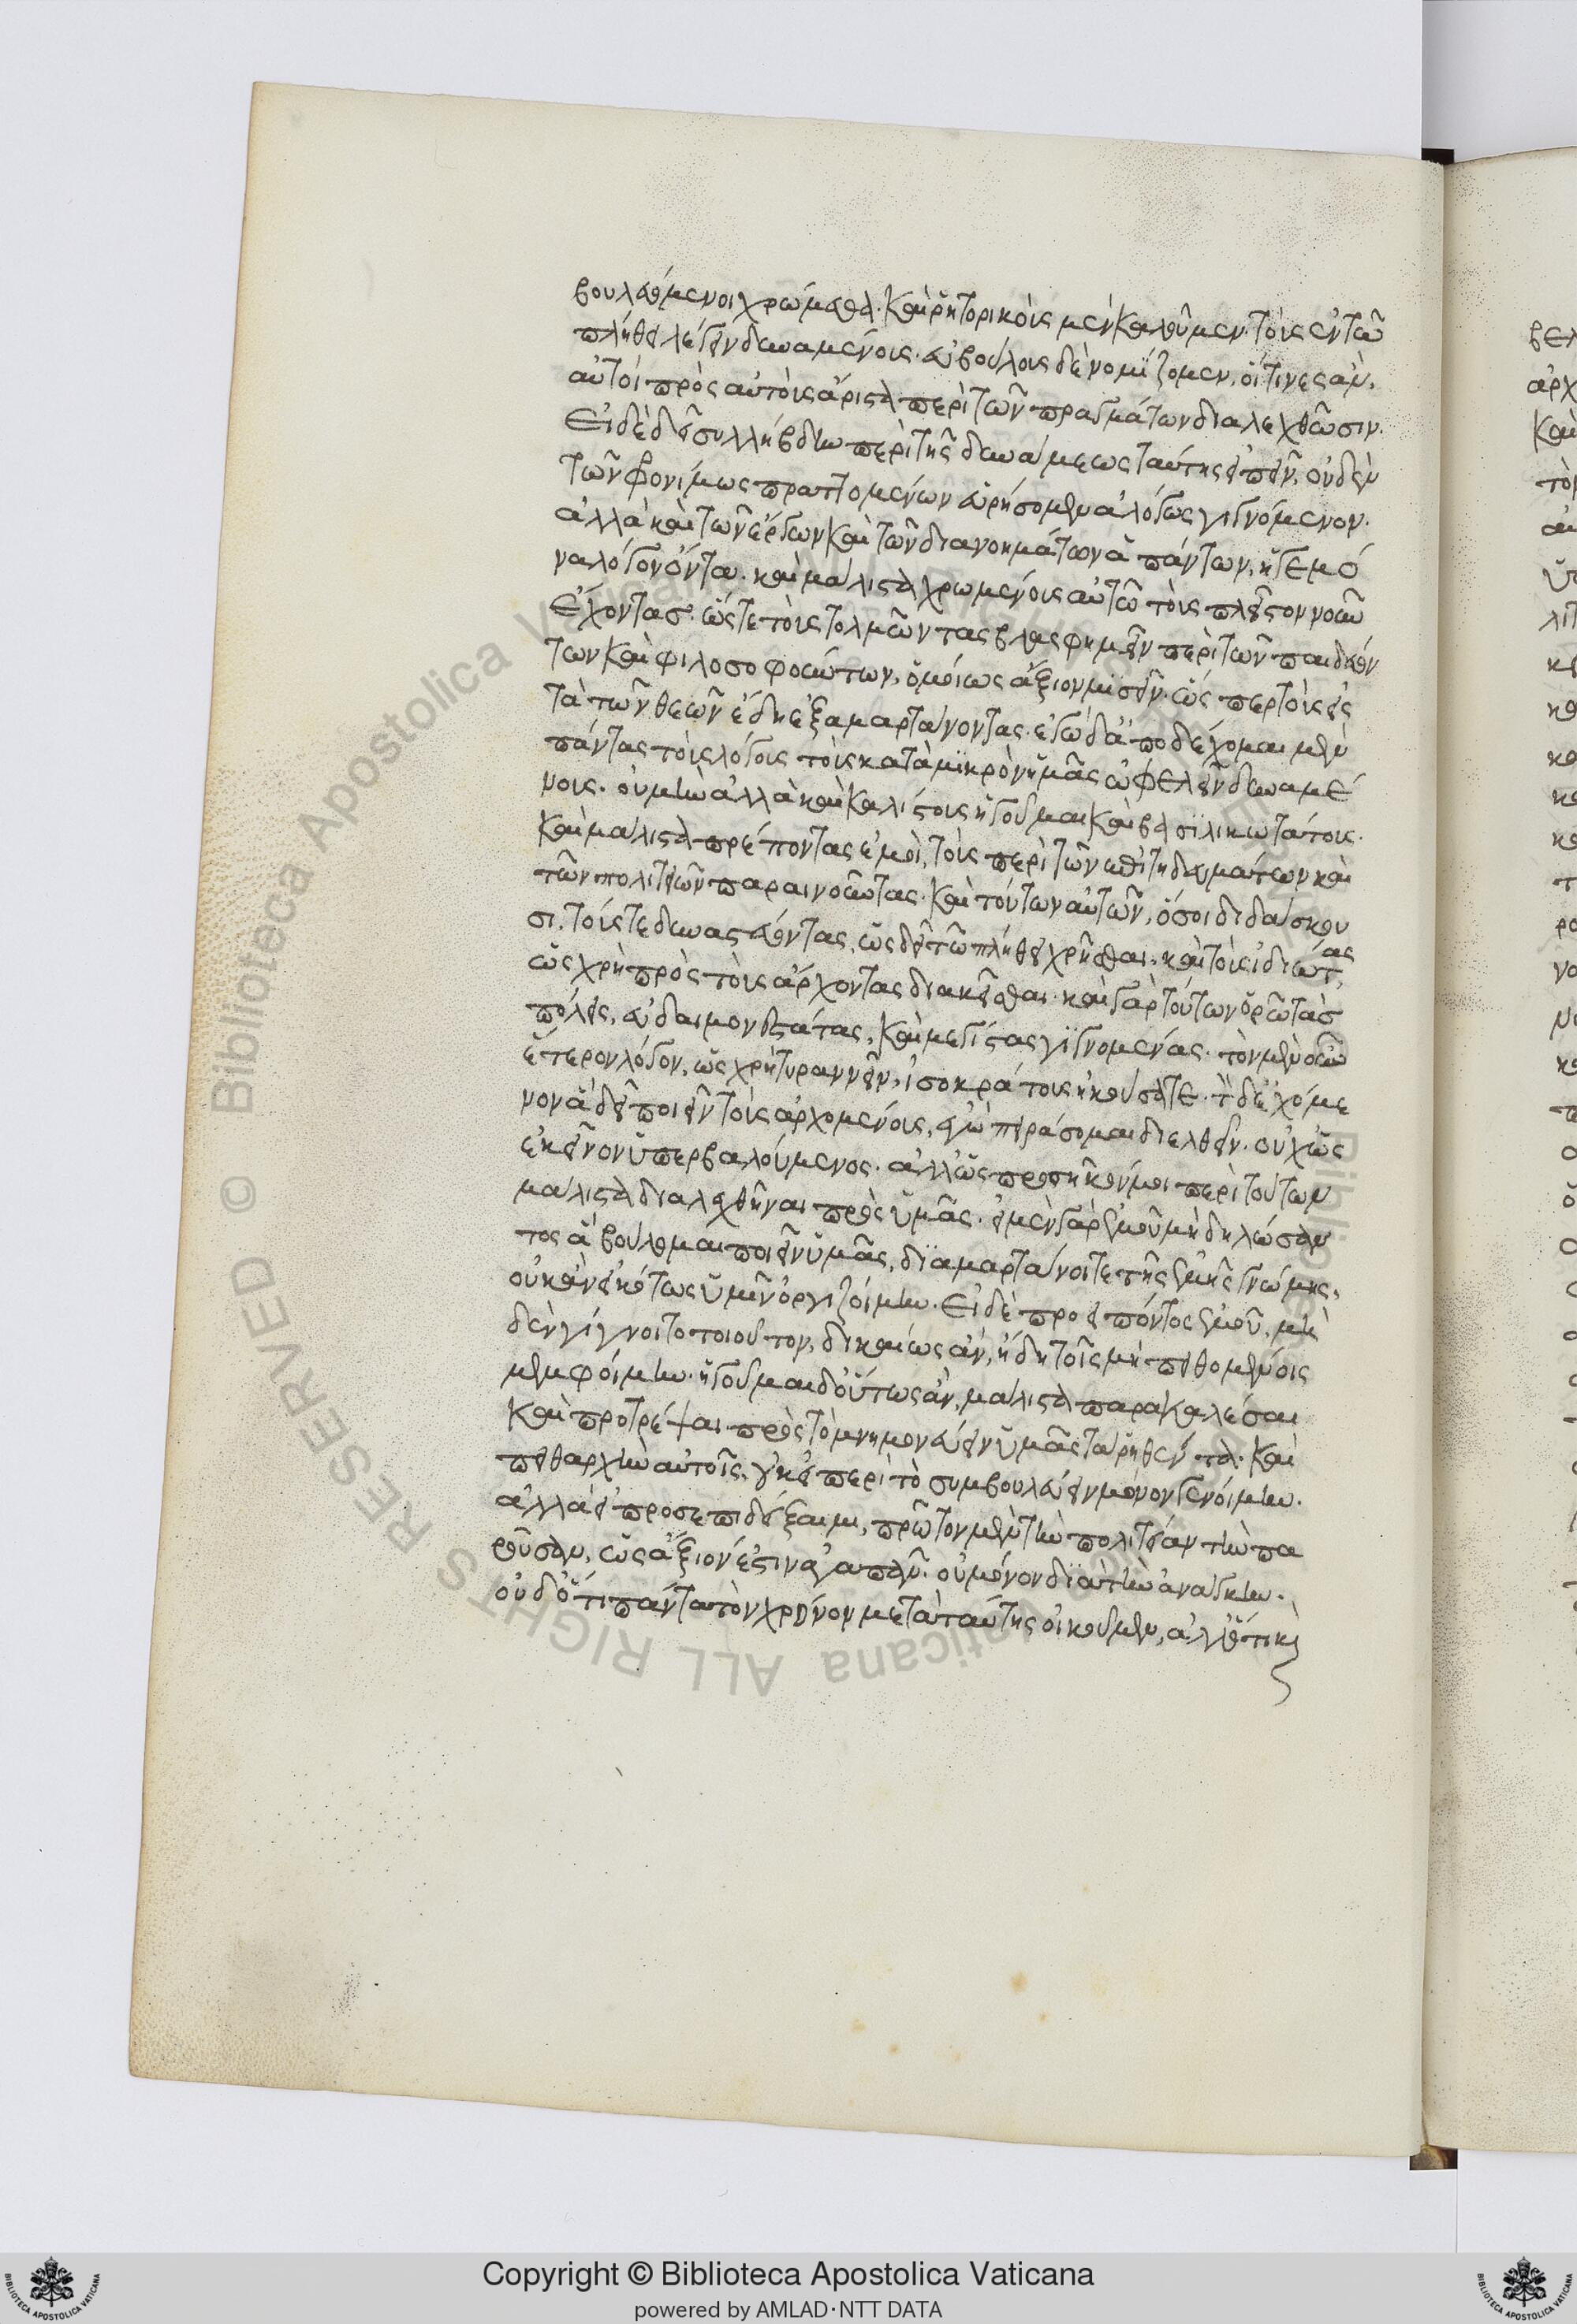 βουλευόμενοι χρώμεθα. καὶ ῥητορικοὺς μὲν καλοῦμεν. τοὺς ἐν τῶ
πλήθει λέγειν δυναμένους. εὐβούλους δὲ νομίζομεν, οἵτινες ἂν,
αὐτοὶ πρὸς αὑτοὺς ἄριστα περὶ τῶν πραγμάτων διαλεχθῶσιν.
Εἰ δὲ δεῖ συλλήβδην περὶ τῆς δυνάμεως ταύτης εἰπεῖν, οὐδὲν
τῶν φρονίμως πραττομένων εὑρήσομεν ἀλόγως γιγνόμενον.
ἀλλὰ καὶ τῶν ἔργων καὶ τῶν διανοημάτων ἁπάντων, ἡγεμό
να λόγον ὄντα. καὶ μάλιστα χρωμένους αὐτῶ τοὺς πλεῖστον νοῦν
ἔχοντας. ὥστε τοὺς τολμῶντας βλασφημεῖν περὶ τῶν παιδευόν
των καὶ φιλοσοφούντων, ὁμοίως ἄξιον μισεῖν. ὥσπερ τοὺς εἰς
τὰ τῶν θεῶν ἕδη ἐξαμαρτάνοντας. ἐγὼ δ' ἀποδέχομαι μὲν
πάντας τοὺς λόγους τοὺς κατὰ μικρὸν ἡμᾶς ὠφελεῖν δυναμέ
νους. οὐ μὴν ἀλλὰ καὶ καλλίστους ἡγοῦμαι καὶ βασιλικωτάτους.
καὶ μάλιστα πρέποντας ἐμοὶ, τοὺς περὶ τῶν ἐπιτηδευμάτων καὶ
τῶν πολιτειῶν παραινοῦντας. καὶ τούτων αὐτῶν, ὅσοι διδάσκου
σι, τούς τε δυναστεύοντας, ὡς δεῖ τῶ πλήθει χρῆσθαι. καὶ τοὺς ἰδιώτας,
ὡς χρὴ πρὸς τοὺς ἄρχοντας διακεῖσθαι. καὶ γὰρ τούτων ὁρῶ τὰς
πόλεις, εὐδαιμονεστάτας, καὶ μεγίστας γιγνομένας. τὸν μὲν οὖν
ἕτερον λόγον, ὡς χρὴ τυραννεῖν, ἰσοκράτους ἠκούσατε. τὸν δ' ἐχόμε
νον ἃ δεῖ ποιεῖν τοὺς ἀρχομένους, ἐγὼ πειράσομαι διελθεῖν. οὐχ ὡς
ἐκεῖνον ὑπερβαλούμενος. ἀλλ' ὡς προσῆκόν μοι περὶ τούτων
μάλιστα διαλεχθῆναι πρὸς ὑμᾶς. εἰ μὲν γὰρ ἐμοῦ μὴ δηλώσαν
τος ἃ βούλομαι ποιεῖν ὑμᾶς, διαμαρτάνοιτε τῆς ἐμῆς γνώμης,
οὐκ ἂν εἰκότως ὑμῖν ὀργιζοίμην. Εἰ δὲ προειπόντος ἐμοῦ, μη
δὲν γίγνοιτο τοιοῦτον, δικαίως ἂν, ἤδη τοῖς μὴ πειθομένοις
μεμφοίμην. ἡγοῦμαι δ' οὕτως ἂν, μάλιστα παρακαλέσαι
καὶ προτρέψαι πρὸς τὸ μνημονεύειν ὑμᾶς τὰ ῥηθέντα. καὶ
πειθαρχεῖν αὐτοῖς, οὐκ εἰ περὶ τὸ συμβουλεύειν μόνον γενοίμην.
ἀλλὰ εἰ προσεπιδείξαιμι, πρῶτον μὲν τὴν πολιτείαν τὴν πα
ροῦσαν, ὡς ἄξιον ἐστιν ἀγαπᾶν. οὐ μόνον διὰ τὴν ἀνάγκην.
οὐδ' ὅτι πάντα τὸν χρόνον μετὰ ταύτης οἰκοῦμεν, ἀλλ' ὅτι καὶ
Copyright © Biblioteca Apostolica Vaticana
powered by AMLAD·NTT DATA